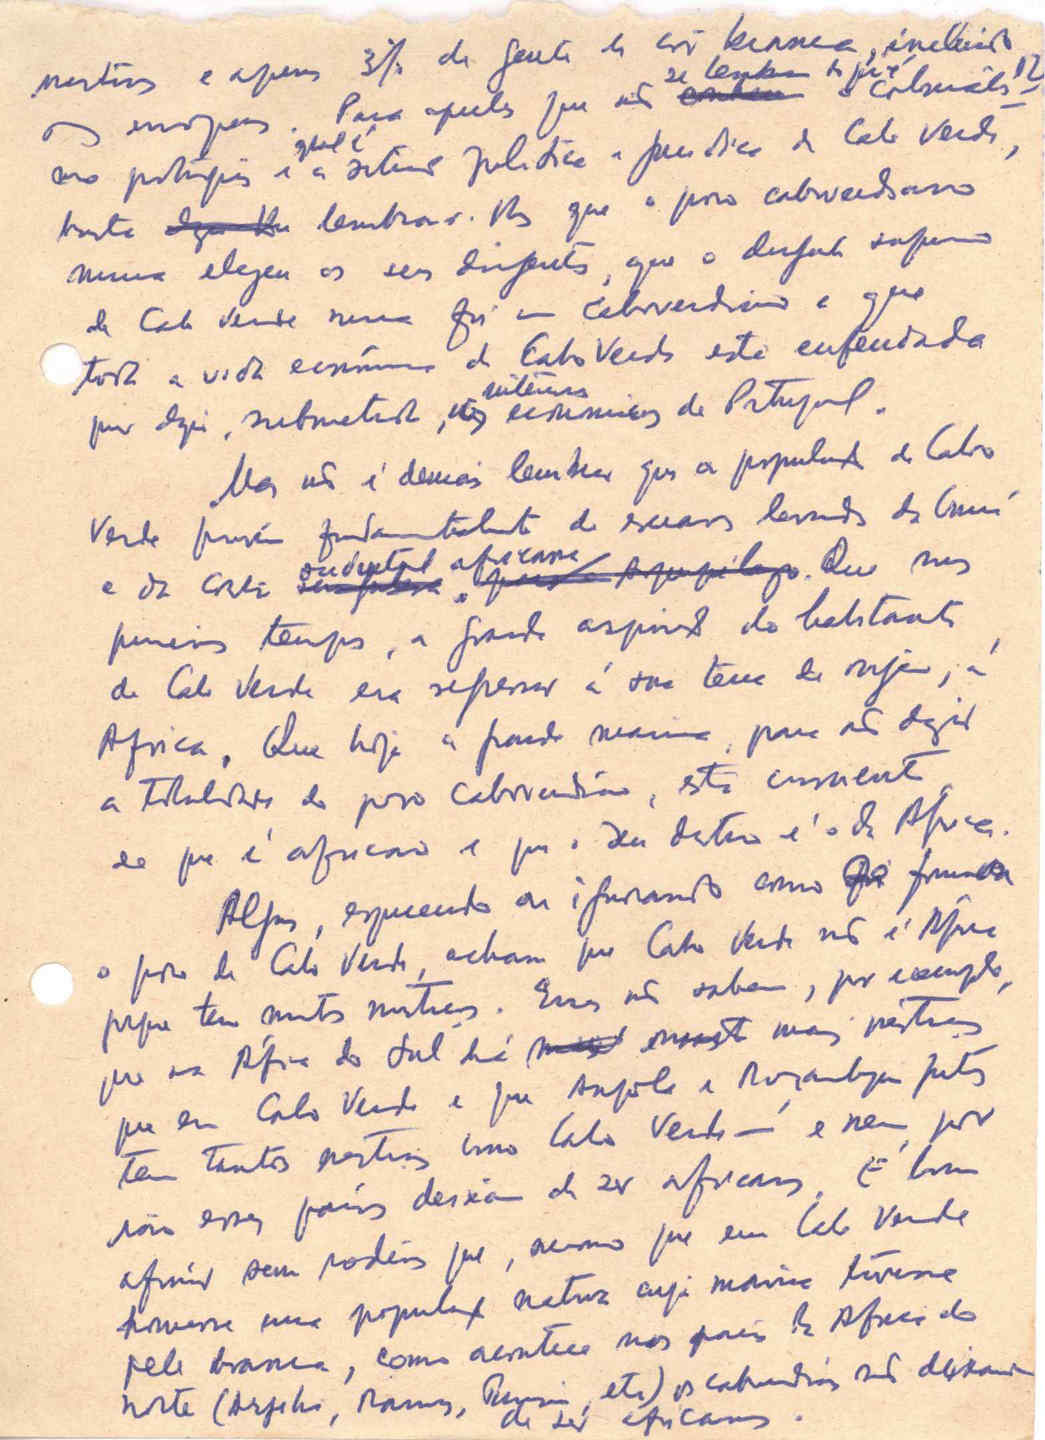 mestiços e apenas 3% de gente de cor branca, incluindo
os europeus. Para aqueles que não se lembram do que é o colonialismo
português e qual é a situação política e jurídica de Cabo Verde,
basta lembrar: que o povo caboverdiano
nunca elegeu os seus dirigentes, que o dirigente supremo
de Cabo Verde nunca foi um caboverdiano e que
toda a vida económica de Cabo Verde está enfeudada
por dizer, submetida, aos interesses economicos de Portugal.
Mas não é demais lembrar que a população de Cabo
Verde provém fundamentalmente de escravos levados da Guiné
e da costa ocidental africana. Que nos
primeiros tempos, a grande aspiração do habitante
de Cabo Verde era regressar á sua terra de origem, á
Africa. Que hoje a grande maioria, para não dizer
a totalidade do povo caboverdiano, está consciente
de que é africano e que o seu destino é o da Africa.
Alguns, esquecendo ou ignorando como foi formado
o povo de Cabo Verde, acham que Cabo Verde não é Africa
porque tem muitos mestiços. Esses não sabem, por exemplo,
que na África do Sul há mais mestiços
que em Cabo Verde e que Angola e Moçambique juntos
tem tantos mestiços como Cabo Verde — e nem por
isso esses países deixam de ser africanos. É bom
afirmar sem rodeios que, mesmo que em Cabo Verde
houvesse uma população nativa cuja maioria tivesse
pele branca, como acontece nos países da Africa do
norte (Argelia, Marrocos, Tunisia, etc) os caboverdianos não deixariam
de ser africanos.